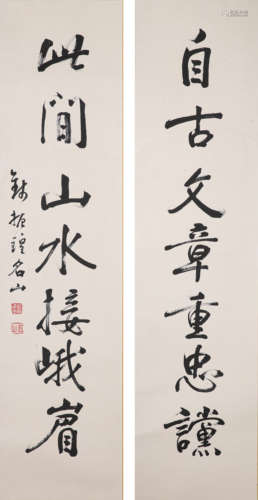 自古文章重忠讜
此間山水接峨眉
錢振鍠名山